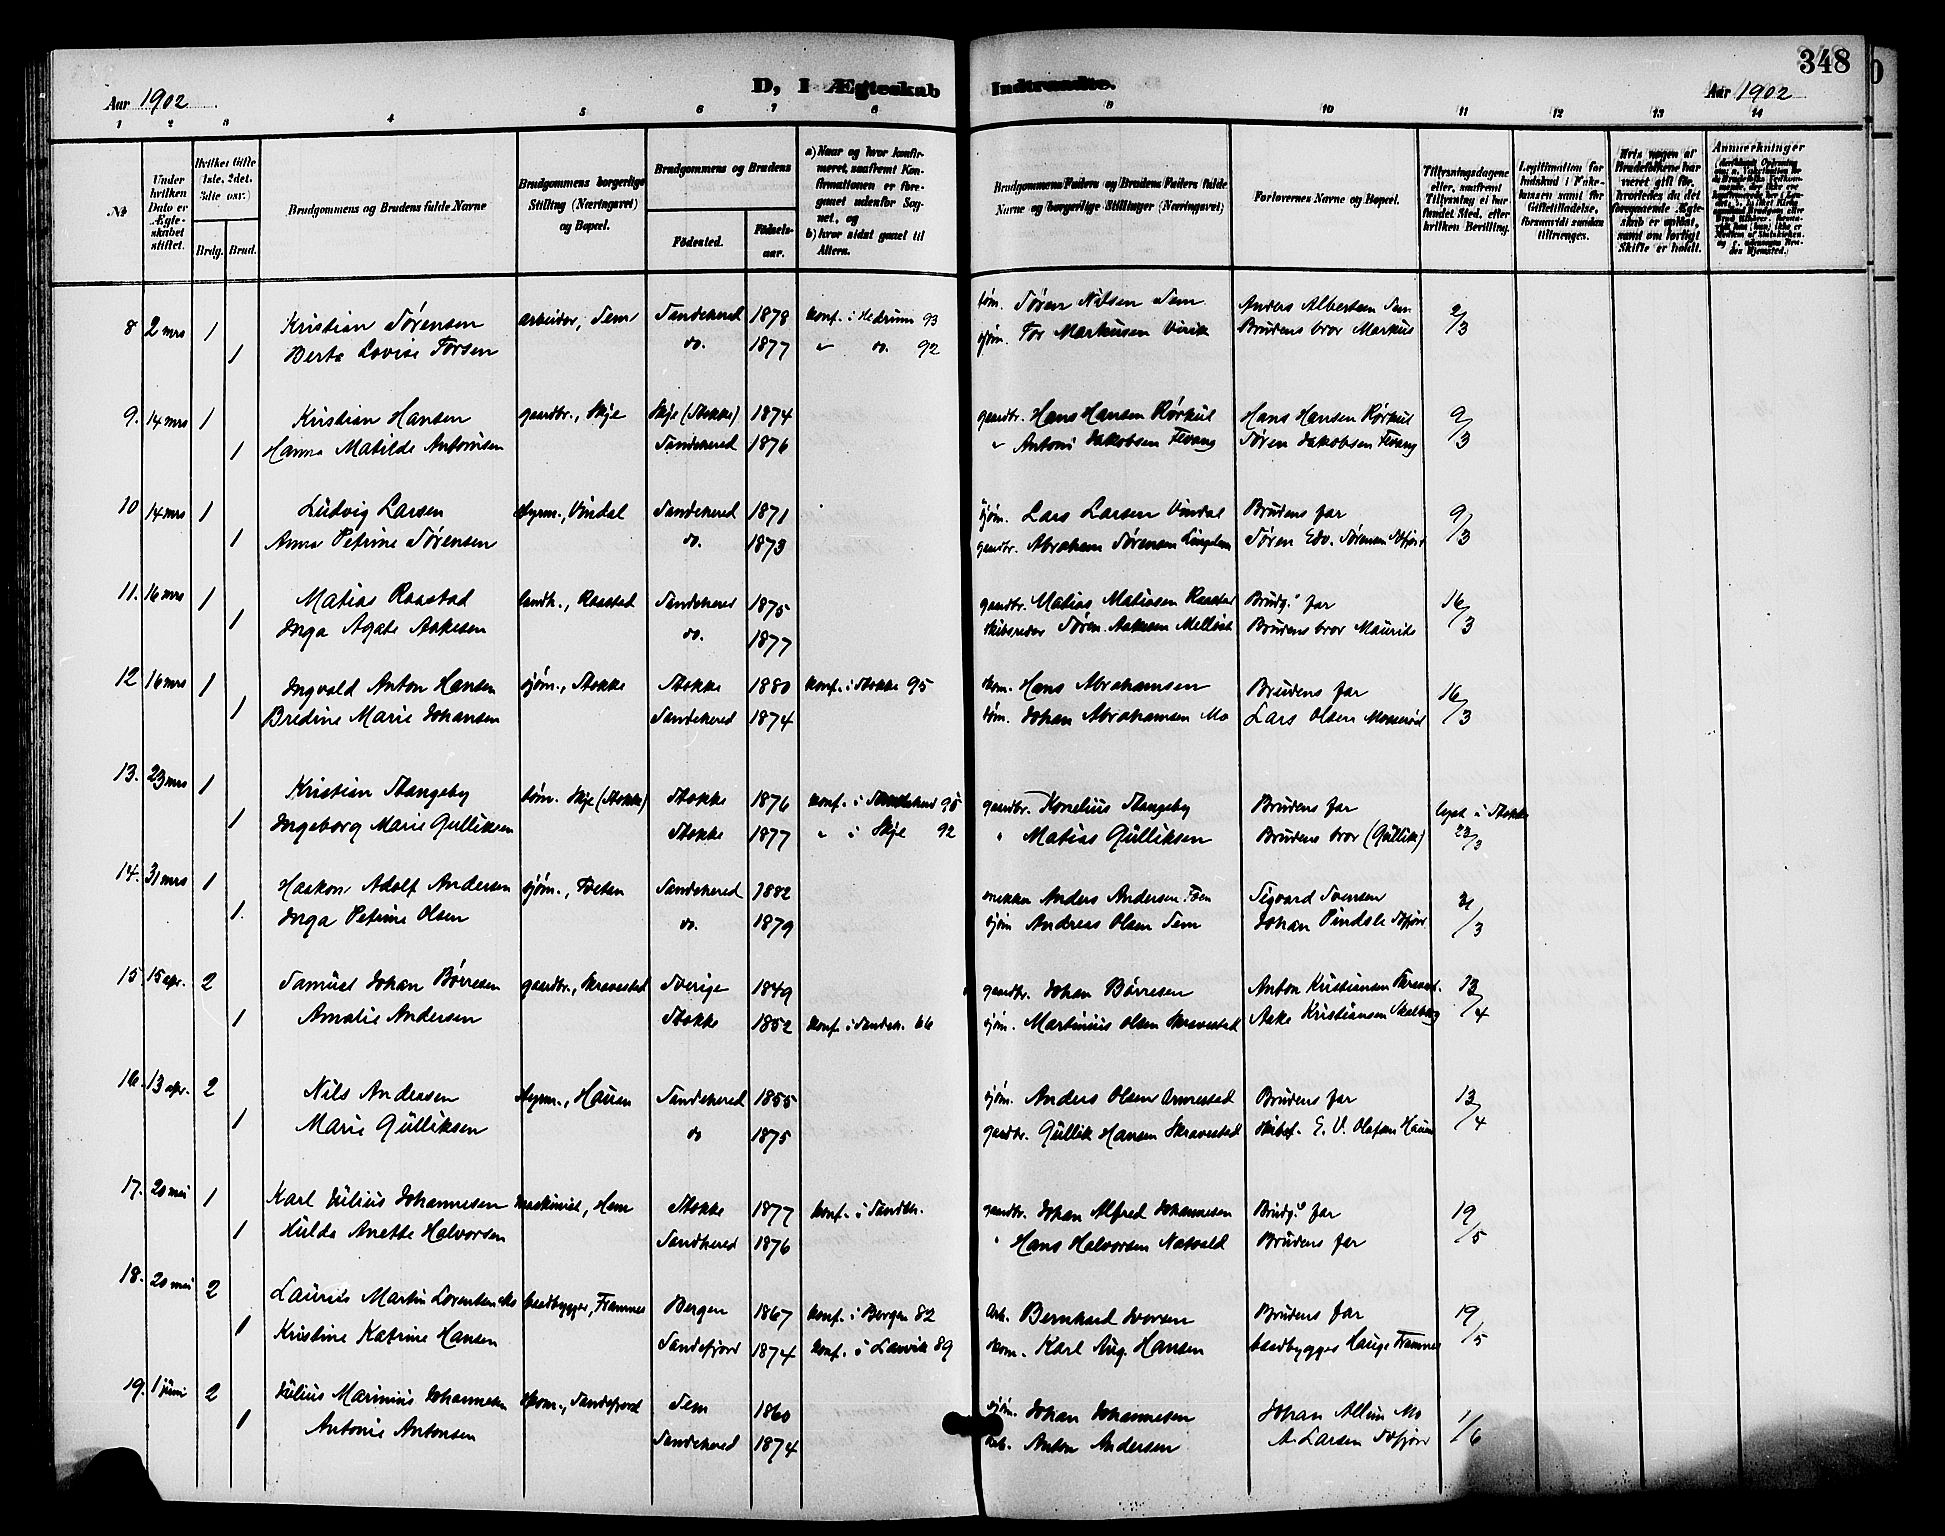 348
D, I Ægteskab Indtraadte.
Aar 1902
Aar 1902
1 2 3 4 5 6 7 8 9 10 11 12 13 14
№
Under hvilken Dato er Ægteskabet stiftet.
Hvilket Gifte 1ste, 2det, 3die osv.
Brdg. Brud.
Brudgommens og Brudens fulde Navne
Brudgommens borgerlige Stilling (Næringsvei) og Bopæl.
Brudgommens og Brudens
Fødested.
Fødselsaar.
a) Naar og hvor konfirmeret, saafremt Konfirmationen er foregaaet udenfor Sognet, og
b) hvor sidst gaaet til Alters.
Brudgommens Faders og Brudens Faders fulde Navne og borgerlige Stillinger (Næringsvei)
Forlovernes Navne og Bopæl.
Tillysningsdagene eller, saafremt Tillysning ei har fundet Sted, efter hvilken Bevilling.
Legitimation for Indskud i Enkekassen samt for Giftetilladelse, forsaavidt saadan tiltrænges.
Hvis nogen af Brudefolkene har været gift før, hvorledes da det foregaaende Ægteskab er opløst, samt om lovligt Skifte er holdt.
Anmærkninger
8 2 mrs 1 Kristian Sørensen arbeider, Sem Sandehered 1878 konf. i Hedrum 93 tøm. Søren Nilsen Sem. Anders Albertsen Sem 2/3
1 Berte Lovise Torsen do. 1877 " do. 92 sjøm. Tor Markusen Virik Brudens bror Markus
9. 14 mrs 1 Kristian Hansen gaardbr., Skje Skje (Stokke) 1874 gaardbr. Hans Hansen Rørkul Hans Hansen Rørkul 9/3
1 Hanna Matilde Antonisen Sandehered 1876 " Antoni Jakobsen Fevang Søren Jakobsen Fevang
10 14 mrs 1 Ludvig Larsen styrm., Vindal Sandehered 1871 sjøm. Lars Larsen Vindal Brudens far 9/3
1 Anna Petrine Sørensen do. 1873 gaardbr. Abraham Sørensen Søren Edv. Sørensen Sdfjord
11. 16 mrs 1 Matias Raastad landh., Raastad Sandehered 1875 gaardbr. Matias Matiasen Raastad Brudg.s far 16/3
1 Inga Agate Aakesen do. 1877 skibsreder Søren Aakesen Brudens bror Maurits
12 16 mrs 1 Ingvald Anton Hansen sjøm., Stokke Stokke 1880 konf. i Stokke 95 skom. Hans Abrahamsen Brudens far 16/3
1 Bredine Marie Johansen Sandehered 1874 tøm. Johan Abrahamsen Mo Lars Olsen Moserød
13. 23 mrs 1 Kristian Stangeby tøm. Skje (Stokke) Stokke 1876 konf. i Sandehered gaardbr. Kornelius Stangeby Brudens far lyst i Stokke
1 Ingeborg Marie Gulliksen Stokke 1877 " i Skje 92 " Matias Gulliksen Brudens bror (Gullik) 23/3
14. 31 mrs 1 Haakon Adolf Andersen sjøm., Tveten Sandehered 1882 Anders Andersen Sigvard Svensen 31/3
1. Inga Petrine Olsen do. 1879 sjøm Andreas Olsen Sem Johan Pindsle Sdfjord
15. 15 apr. 2 Samuel Johan Børresen gaardbr., Skravested Sverige 1849 gaardbr. Johan Børresen Anton Kristiansen 13/4
1 Amalie Andersen Stokke 1852 konf. i Sandeh. 66 sjøm. Martinius Olsen Skravested Aake Kristiansen
16. 13 apr. 2 Nils Andersen styrm., Hauan Sandehered 1855 sjøm. Anders Olsen Brudens far 13/4
1 Marie Gulliksen do 1875 gaardbr. Gullik Hansen Skravested skibsf. E. V. Olafsen Hauan
17. 20 mai 1 Karl Julius Johannesen maskinist, Hem Stokke 1877 konf. i Sandeh. gaardbr. Johan Alfred Johannesen Brudg.s far 19/5
1 Hulda Anette Halvorsen Sandehered 1876 " Hans Halvorsen Natvald Brudens far
18. 20 mai 2 Laurits Martin Lorentsen baadbygger, Framnes Bergen 1867 konf. i Bergen 82 Arb. Bernhard Iversen Brudens far 19/5
1 Kristine Katrine Hansen Sandefjord 1874 konf. i Larvik 89 skom. Karl Aug. Hansen baadbygger Hauge Framnes
19. 1 juni 2 Julius Marinius Johannesen skom., Sandefjord Sem 1860 sjøm. Johan Johannesen Johan Allum Mo 1/6
1 Antonie Antonsen Sandehered 1874 arb. Anton Andersen A. Larsen Sdfjord